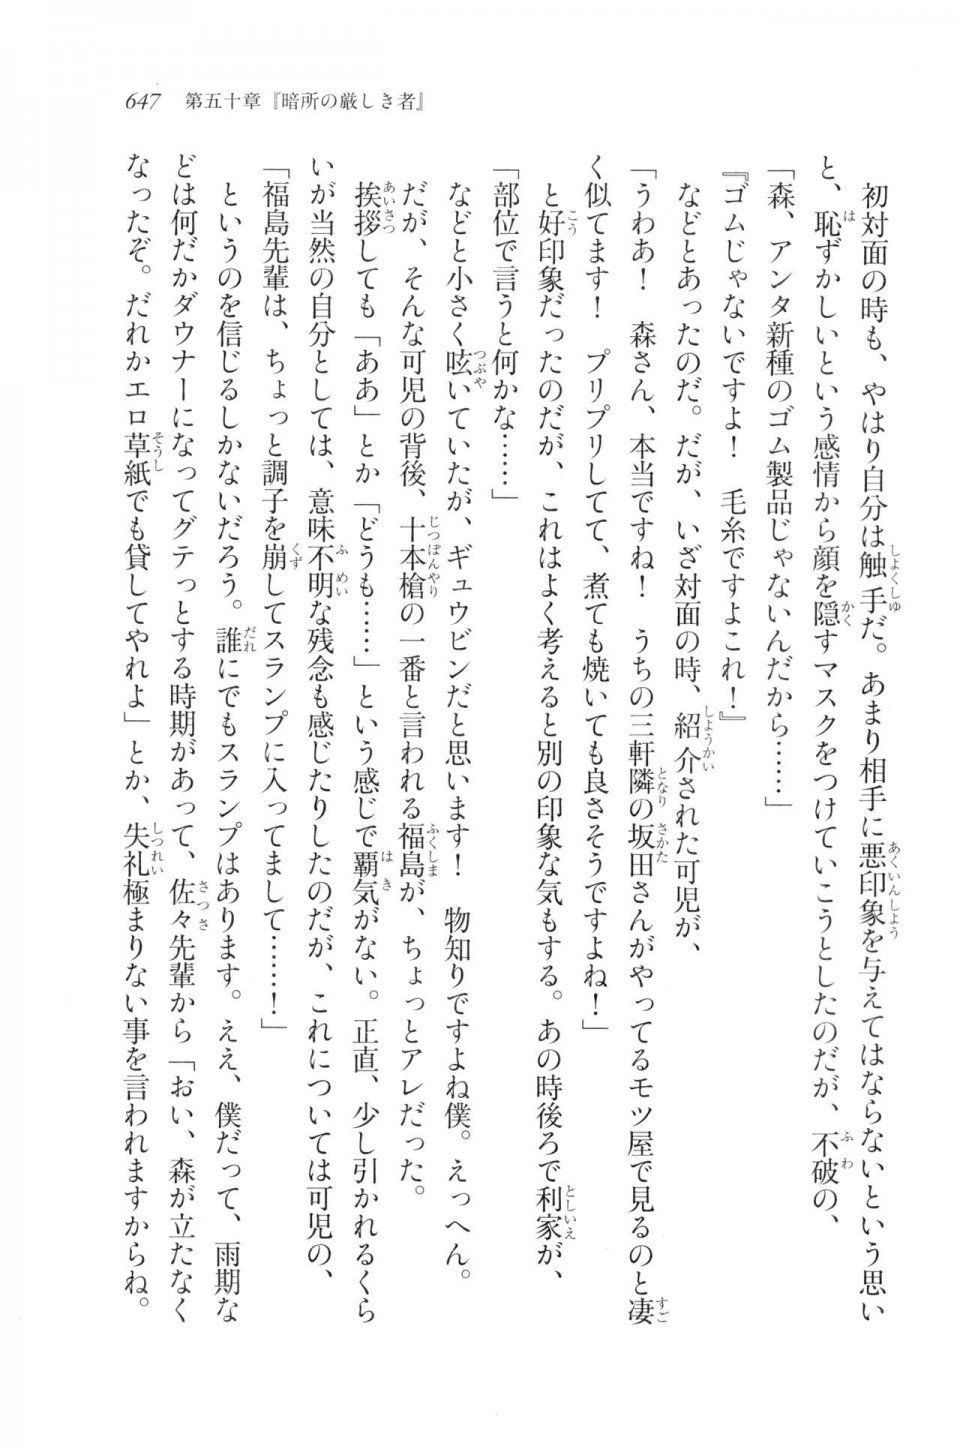 647　第五十章『暗所の厳しき者』
　初対面の時も、やはり自分は触手だ。あまり相手に悪印象を与えてはならないという思い
と、恥ずかしいという感情から顔を隠すマスクをつけていこうとしたのだが、不破の、
「森、アンタ新種のゴム製品じゃないんだから……」
『ゴムじゃないですよ！　毛糸ですよこれ！』
　などとあったのだ。だが、いざ対面の時、紹介された可児が、
「うわあ！　森さん、本当ですね！　うちの三軒隣の坂田さんがやってるモツ屋で見るのと凄
く似てます！　プリプリしてて、煮ても焼いても良さそうですよね！」
　と好印象だったのだが、これはよく考えると別の印象な気もする。あの時後ろで利家が、
「部位で言うと何かな……」
　などと小さく呟いていたが、ギュウビンだと思います！　物知りですよね僕。えっへん。
　だが、そんな可児の背後、十本槍の一番と言われる福島が、ちょっとアレだった。
　挨拶しても「ああ」とか「どうも……」という感じで覇気がない。正直、少し引かれるくら
いが当然の自分としては、意味不明な残念も感じたりしたのだが、これについては可児の、
「福島先輩は、ちょっと調子を崩してスランプに入ってまして……！」
　というのを信じるしかないだろう。誰にでもスランプはあります。ええ、僕だって、雨期な
どは何だかダウナーになってグテっとする時期があって、佐々先輩から「おい、森が立たなく
なったぞ。だれかエロ草紙でも貸してやれよ」とか、失礼極まりない事を言われますからね。